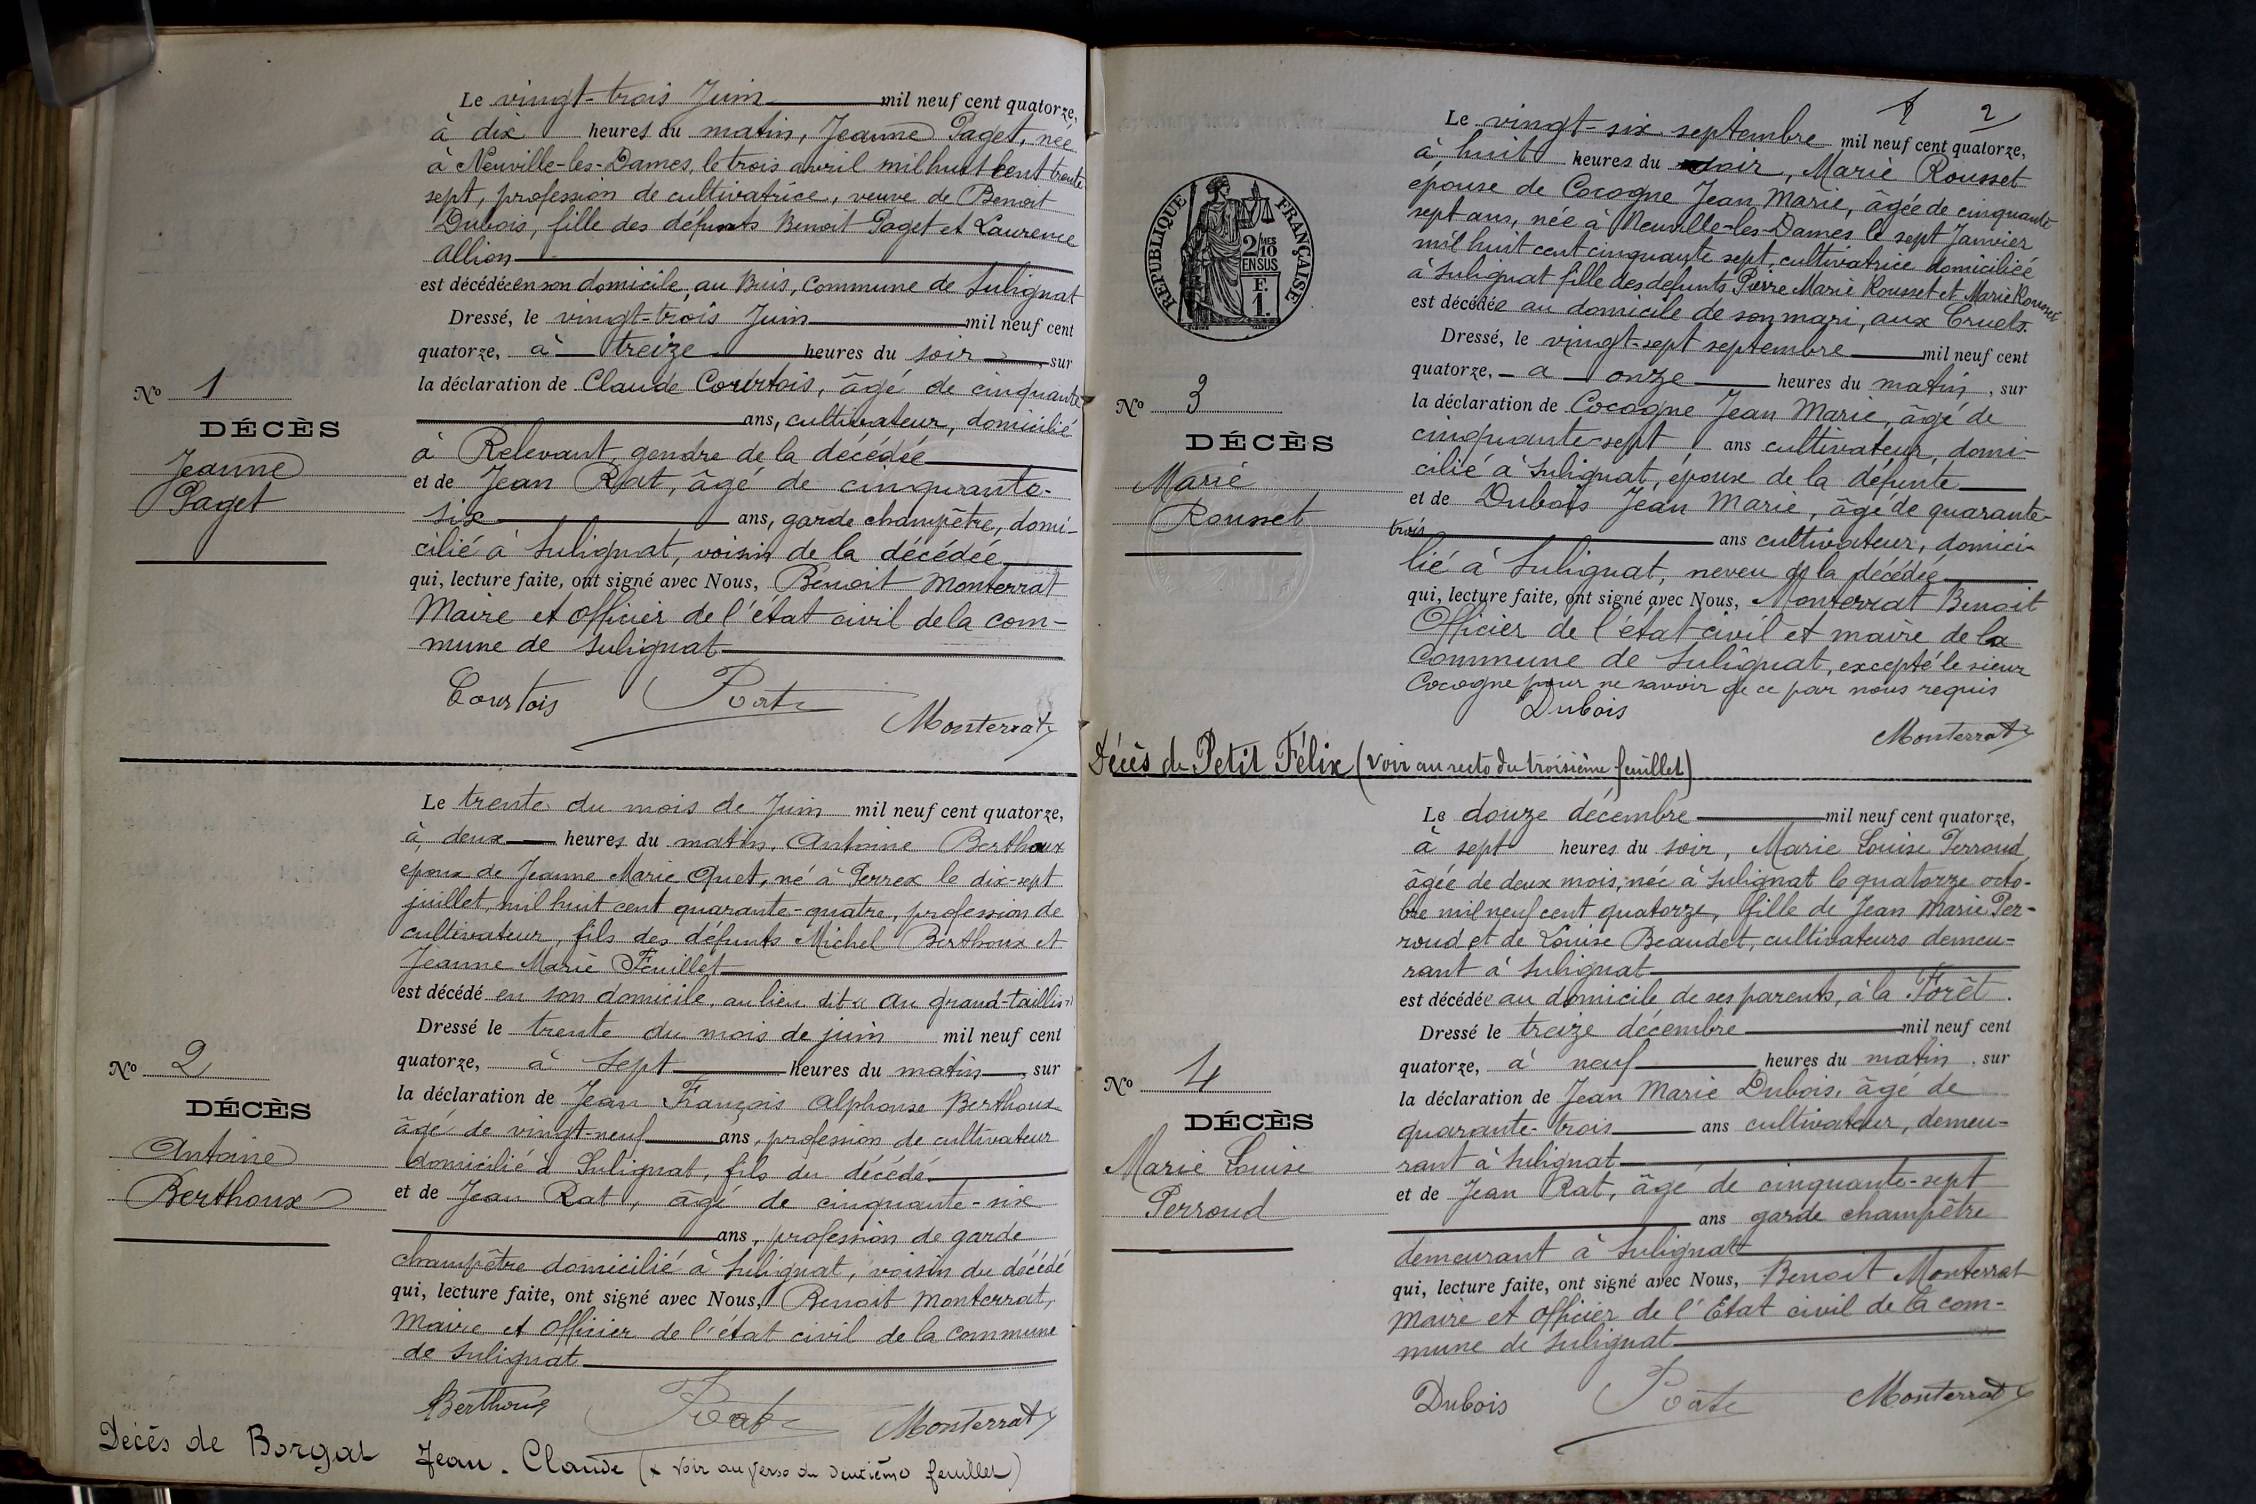 Le vingt-trois Juin mil neuf cent quatorze,
à dix heures du matin, Jeanne Paget, née
à Neuville-les-Dames, le trois avril mil huit cent trente
sept, profession de cultivatrice, veuve de Benoit
Dubois, fille des défunts Benoit Paget et Laurence
Allion
est décédée en son domicile, au Buis, commune de Sulignat
Dressé, le vingt-trois Juin mil neuf cent
quatorze, à treize heures du soir, sur
la déclaration de Claude Courtois, âgé de cinquante
ans, cultivateur, domicilié
à Relevant, gendre de la décédée
et de Jean Rat, âgé de cinquante-
six ans, garde champêtre, domi-
cilié à Sulignat, voisin de la décédée
qui, lecture faite, ont signé avec Nous, Benoit Monterrat
Maire et officier de l'état civil de la com-
mune de Sulignat
Courtois Rat Monterrat
No 1
DÉCÈS
Jeanne
Paget
Le trente du mois de Juin mil neuf cent quatorze,
à deux heures du matin, Antoine Berthoux
époux de Jeanne Marie Quet, né à Perrex le dix-sept
juillet, mil huit cent quarante-quatre, profession de
cultivateur, fils des défunts Michel Berthoux et
Jeanne Marie Feuillet
est décédé en son domicile, au lieu dit « au grand-taillis »
Dressé le trente du mois de juin mil neuf cent
quatorze, à sept heures du matin, sur
la déclaration de Jean François Alphonse Berthoux
âgé de vingt-neuf ans, profession de cultivateur
domicilié à Sulignat, fils du décédé
et de Jean Rat, âgé de cinquante-six
ans, profession de garde
champêtre domicilié à Sulignat, voisin du décédé
qui, lecture faite, ont signé avec Nous, Benoit Monterrat,
Maire et officier de l'état civil de la commune
de Sulignat
Berthoux Rat Monterrat
No 2
DÉCÈS
Antoine
Berthoux
Décès de Borgat Jean-Claude (x voir au verso du deuxième feuillet)
2
Le vingt-six septembre mil neuf cent quatorze,
à huit heures du soir, Marie Rousset
épouse de Cocogne Jean Marie, âgée de cinquante
sept ans, née à Neuville-les-Dames le sept Janvier
mil huit cent cinquante sept, cultivatrice domiciliée
à Sulignat fille des défunts Pierre Marie Rousset et Marie Rousset
est décédée au domicile de son mari, aux Cruels.
Dressé, le vingt-sept septembre mil neuf cent
quatorze, à onze heures du matin, sur
la déclaration de Cocogne Jean Marie, âgé de
cinquante-sept ans cultivateur, domi-
cilié à Sulignat, époux de la défunte
et de Dubois Jean Marie, âgé de quarante-
trois ans cultivateur, domici-
lié à Sulignat, neveu de la décédée
qui, lecture faite, ont signé avec Nous, Monterrat Benoit
Officier de l'état civil et maire de la
commune de Sulignat, excepté le sieur
Cocogne pour ne savoir de ce par nous requis
Dubois Monterrat
RÉPUBLIQUE FRANÇAISE
2/10MES
EN SUS
F.
1.
No 3
DÉCÈS
Marie
Rousset
Décès de Petit Félix (voir au recto du troisième feuillet)
Le douze décembre mil neuf cent quatorze,
à sept heures du soir, Marie Louise Perroud
âgée de deux mois, née à Sulignat le quatorze octo-
bre mil neuf cent quatorze, fille de Jean Marie Per-
roud et de Louise Beaudet, cultivateurs demeu-
rant à Sulignat
est décédée au domicile de ses parents, à la Forêt.
Dressé le treize décembre mil neuf cent
quatorze, à neuf heures du matin, sur
la déclaration de Jean Marie Dubois, âgé de
quarante-trois ans cultivateur, demeu-
rant à Sulignat
et de Jean Rat, âgé de cinquante-sept
ans garde champêtre
demeurant à Sulignat
qui, lecture faite, ont signé avec Nous, Benoit Monterrat
Maire et officier de l'Etat civil de la com-
mune de Sulignat
Dubois Rat Monterrat
No 4
DÉCÈS
Marie Louise
Perroud